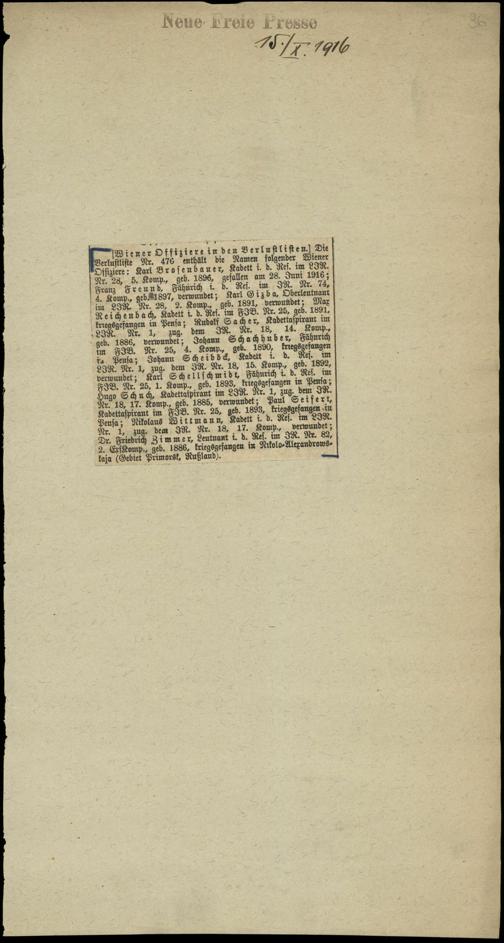 Neue Freie Presse
36
15./X. 1916
[Wiener Offiziere in den Verlustlisten.] Die
Verlustliste Nr. 476 enthält die Namen folgender Wiener
Offiziere: Karl Brosenbauer, Kadett i. d. Res. im LJR.
Nr. 28, 5. Komp., geb. 1896, gefallen am 28. Juni 1916;
Franz Freund, Fähnrich i. d. Res. im JR. Nr. 74,
4. Komp., geb. 1897, verwundet; Karl Gizba, Oberleutnant
im LJR. Nr. 28, 2. Komp., geb. 1891, verwundet; Max
Reichenbach, Kadett i. d. Res. im FJB. Nr. 25, geb. 1891,
kriegsgefangen in Pensa; Rudolf Sacher, Kadettaspirant im
LJR. Nr. 1, zug. dem JR. Nr. 18, 14. Komp.,
geb. 1886, verwundet; Johann Schachhuber, Fähnrich
im FJB. Nr. 25, 4. Komp., geb. 1890, kriegsgefangen
in Pensa; Johann Scheibböck, Kadett i. d. Res. im
LJR. Nr. 1, zug. dem JR. Nr. 18, 15. Komp., geb. 1892,
verwundet; Karl Schellschmidt, Fähnrich i. d. Res. im
FJB. Nr. 25, 1. Komp., geb. 1893, kriegsgefangen in Pensa;
Hugo Schuch, Kadettaspirant im LJR. Nr. 1, zug. dem JR.
Nr. 18, 17. Komp., geb. 1885, verwundet; Paul Seifert,
Kadettaspirant im FJB. Nr. 25, geb. 1893, kriegsgefangen in
Pensa; Nikolaus Wittmann, Kadett i. d. Res. im LJR.
Nr. 1, zug. dem JR. Nr. 18, 17. Komp., verwundet;
Dr. Friedrich Zimmer, Leutnant i. d. Res. im JR. Nr. 82,
2. ErsKomp., geb. 1886, kriegsgefangen in Nikolo-Alexandrows-
kaja (Gebiet Primorsk, Rußland).